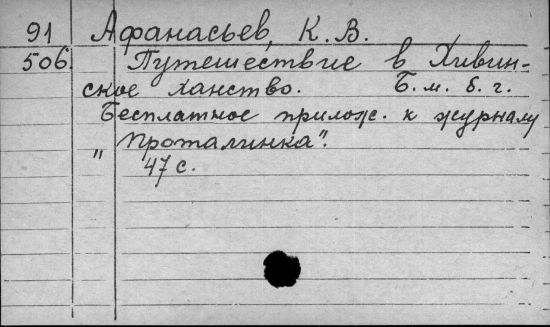 91 Афанасьев, К. В.
506 Путешествие в Хивин-
ское ханство. Б. м. б. г.
Бесплатное прилож. к журналу
„Проталинка".
47 с.